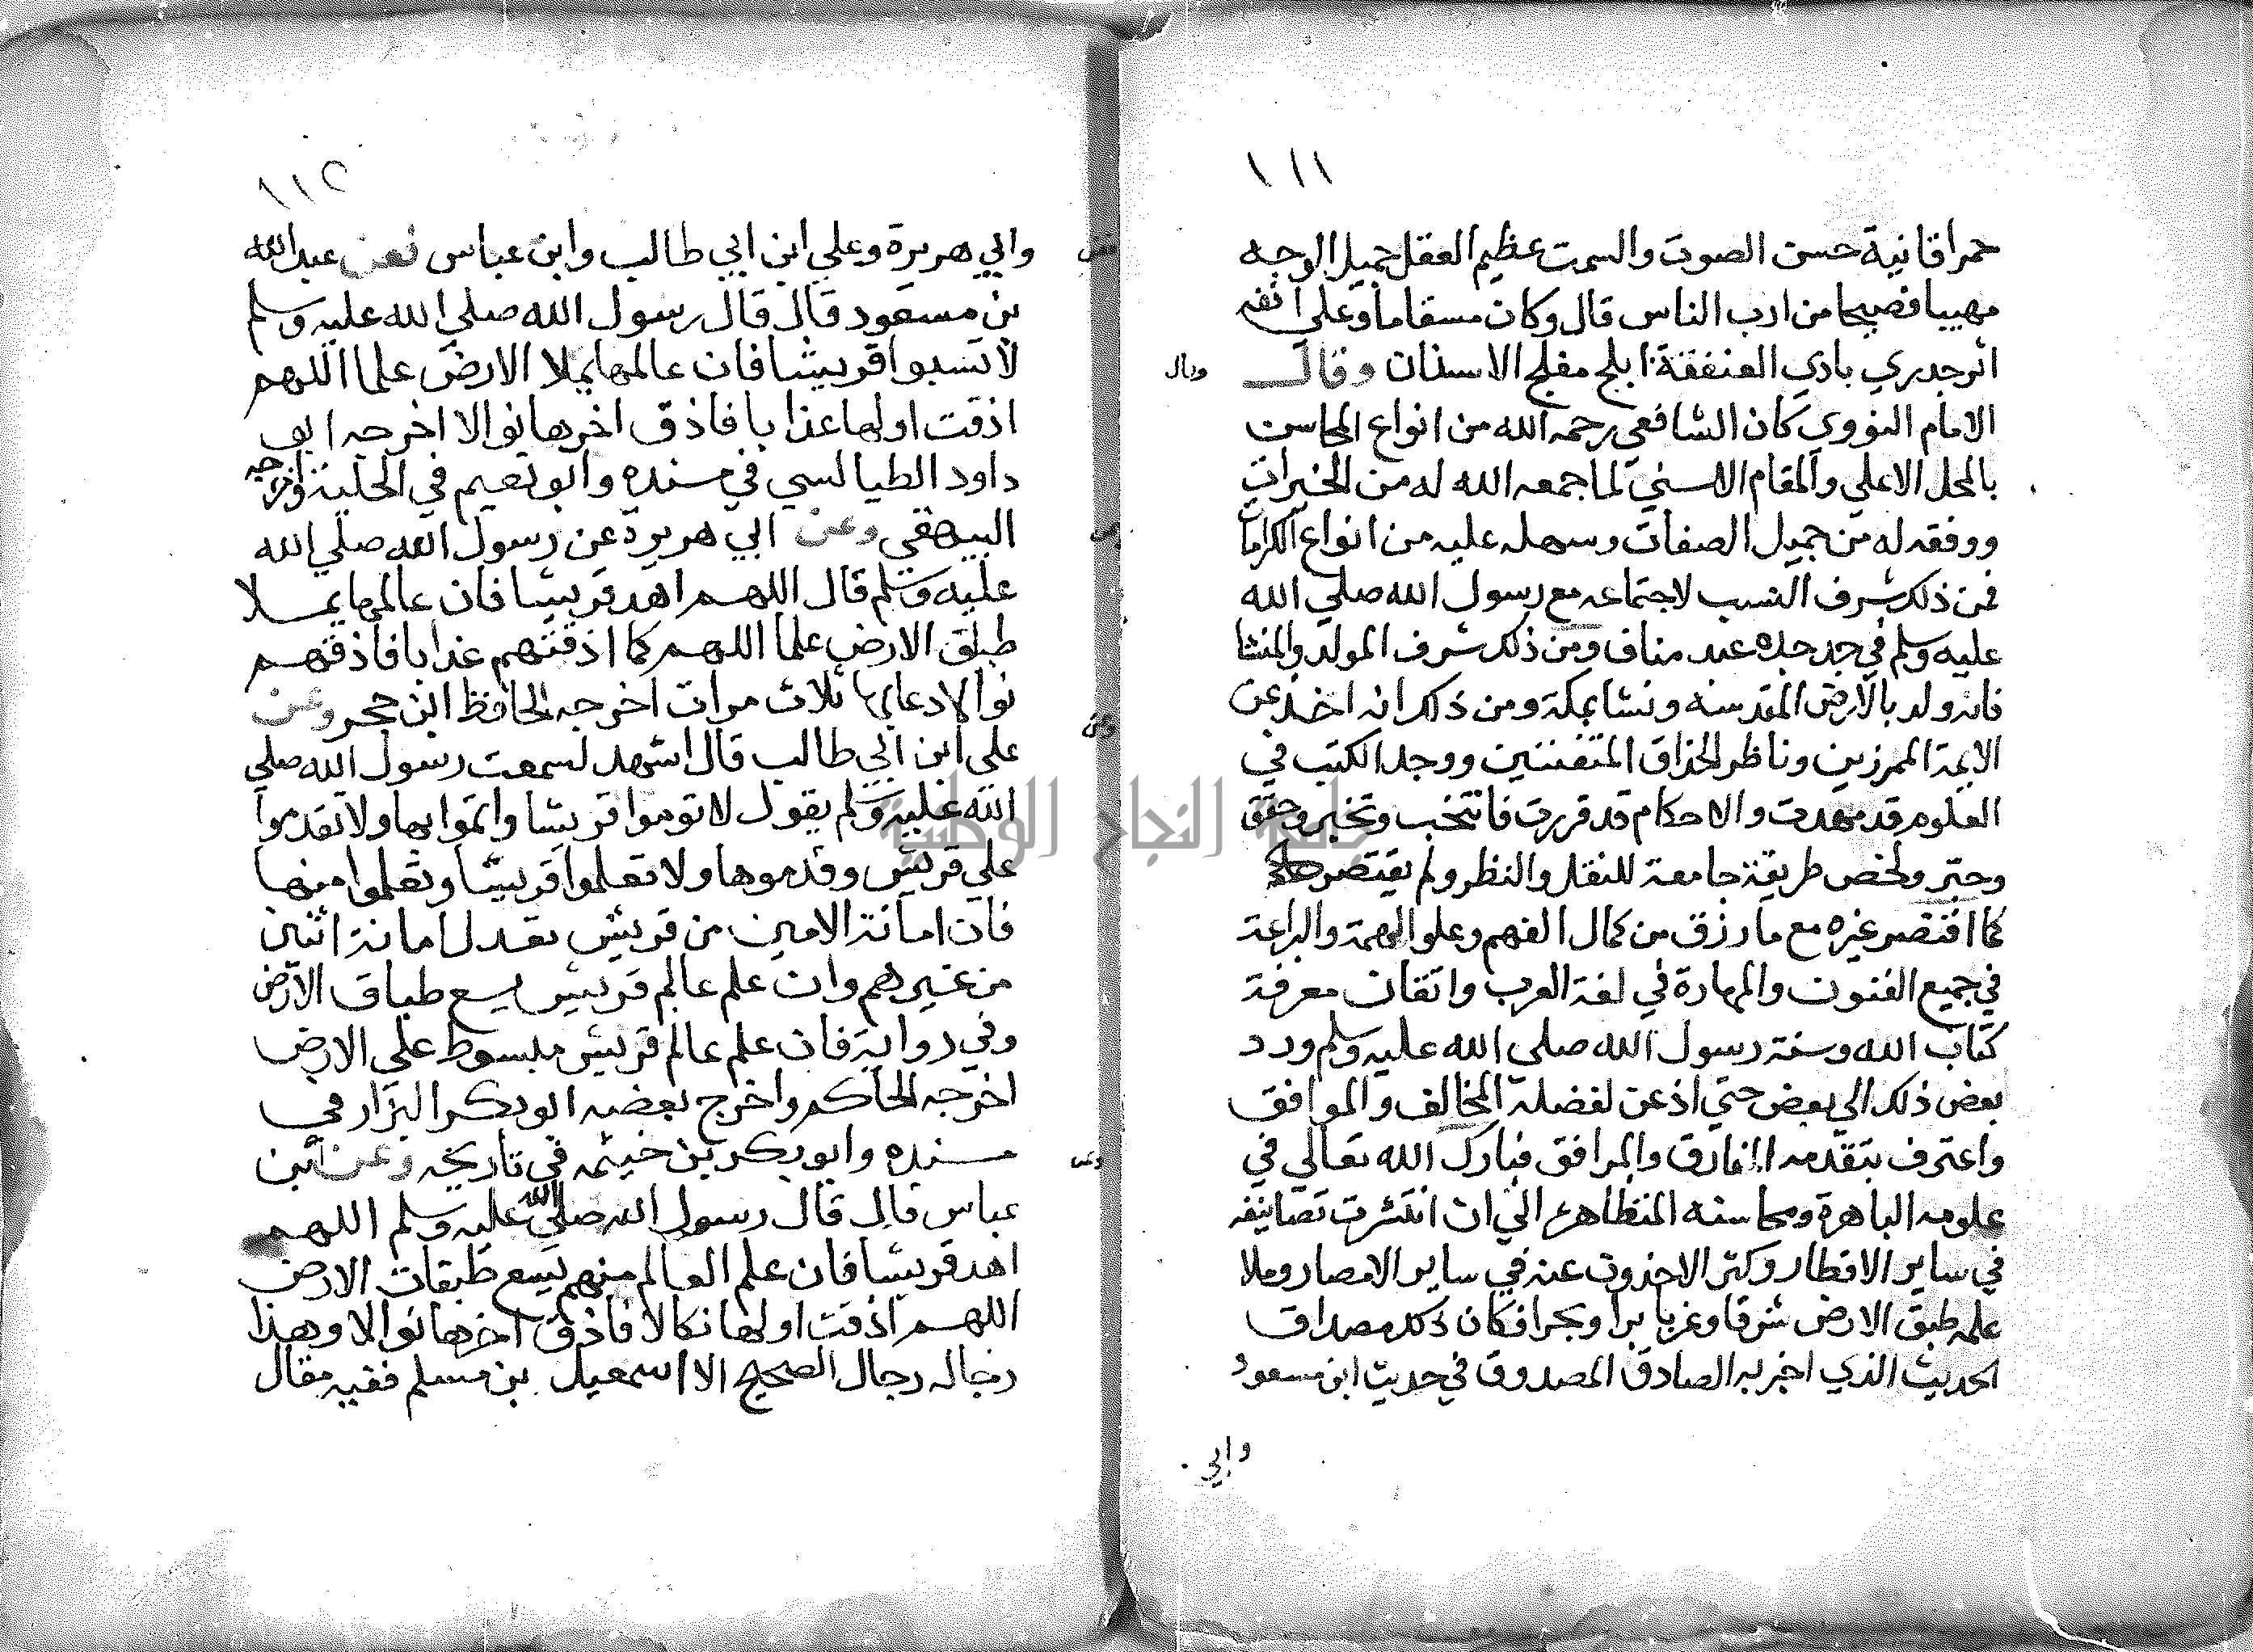 ١١١
حمرا قانية حسن الصوت والسمت عظيم العقل جميل الوجه
مهيبا فصيحا من ادب الناس قال وكان مسقاما وعلى انفه
اثر جدري بادي العنفقة ابلج مفلج الاسنان وقال
وقال
الامام النووي كان الشافعي رحمه الله من انواع المحاسن
بالمحل الاعلي والمقام الاسني لما جمعه الله له من الخيرات
ووفقه له من جميل الصفات وسهله عليه من انواع الكرامات
فمن ذلك شرف النسب لاجتماعه مع رسول الله صلي الله
عليه وسلم في جد جده عبد مناف ومن ذلك شرف المولد والمنشا
فانه ولد بالارض المقدسه ونشا بمكة ومن ذلك انه اخذ عن
الايمة المبرزين وناظر الحذاق المتفننين ووجد الكتب في
العلوم قد مهدت والاحكام قد قررت فانتخب وتخير وحقق
وحبر ولخص طريقة جامعة للنقل والنظر ولم يقتصر
كما اقتصر غيره مع ما رزق من كمال الفهم وعلو الهمة والبراعة
في جميع الفنون والمهارة في لغة العرب واتقان معرفة
كتاب الله وسنة رسول الله صلي الله عليه وسلم ورد
بعض ذلك الي بعض حتي اذعن لفضله المخالف والموافق
واعترف بتقدمه المفارق والمرافق فبارك الله تعالي في
علومه الباهرة ومحاسنه المتظاهرة الي ان انتشرت تصانيفه
في ساير الاقطار وكثر الاخذون عنه في ساير الامصار وملا
علمه طبق الارض شرقا وغربا برا وبحرا فكان ذلك مصداق
الحديث الذي اخبر به الصادق المصدوق في حديث ابن مسعود
وابي
١١٢
وابي هريرة وعلي ابن ابي طالب وابن عباس فعن عبد الله
بن مسعود قال قال رسول الله صلي الله عليه وسلم
لا تسبوا قريشا فان عالمها يملا الارض علما اللهم
اذقت اولها عذابا فاذق اخرها نوالا اخرجه ابو
داود الطيالسي في مسنده وابو نعيم في الحلية واخرجه
البيهقي وعن ابي هريرة عن رسول الله صلي الله
عليه وسلم قال اللهم اهد قريشا فان عالمها يملا
طباق الارض علما اللهم كما اذقتهم عذابا فاذقهم
نوالا دعا بها ثلاث مرات اخرجه الحافظ ابن حجر وعن
علي ابن ابي طالب قال اشهد لسمعت رسول الله صلي
الله عليه وسلم يقول لا توموا قريشا واتموا بها ولا تقدموا
علي قريش وقدموها ولا تعلموا قريشا وتعلموا منها
فان امانة الامين من قريش تعدل امانة اثنين
من غيرهم وان علم عالم قريش يسع طباق الارض
وفي رواية فان علم عالم قريش مبسوط علي الارض
اخرجه الحاكم واخرج بعضه ابو بكر البزار في
مسنده وابو بكر بن خيثمه في تاريخه وعن ابن
عباس قال قال رسول الله صلي الله عليه وسلم اللهم
اهد قريشا فان علم العالم منهم يسع طبقات الارض
اللهم اذقت اولها نكالا فاذق اخرها نوالا وهذا
رجاله رجال الصحيح الا اسمعيل بن مسلم ففيه مقال
جامعة النجاح الوطنية